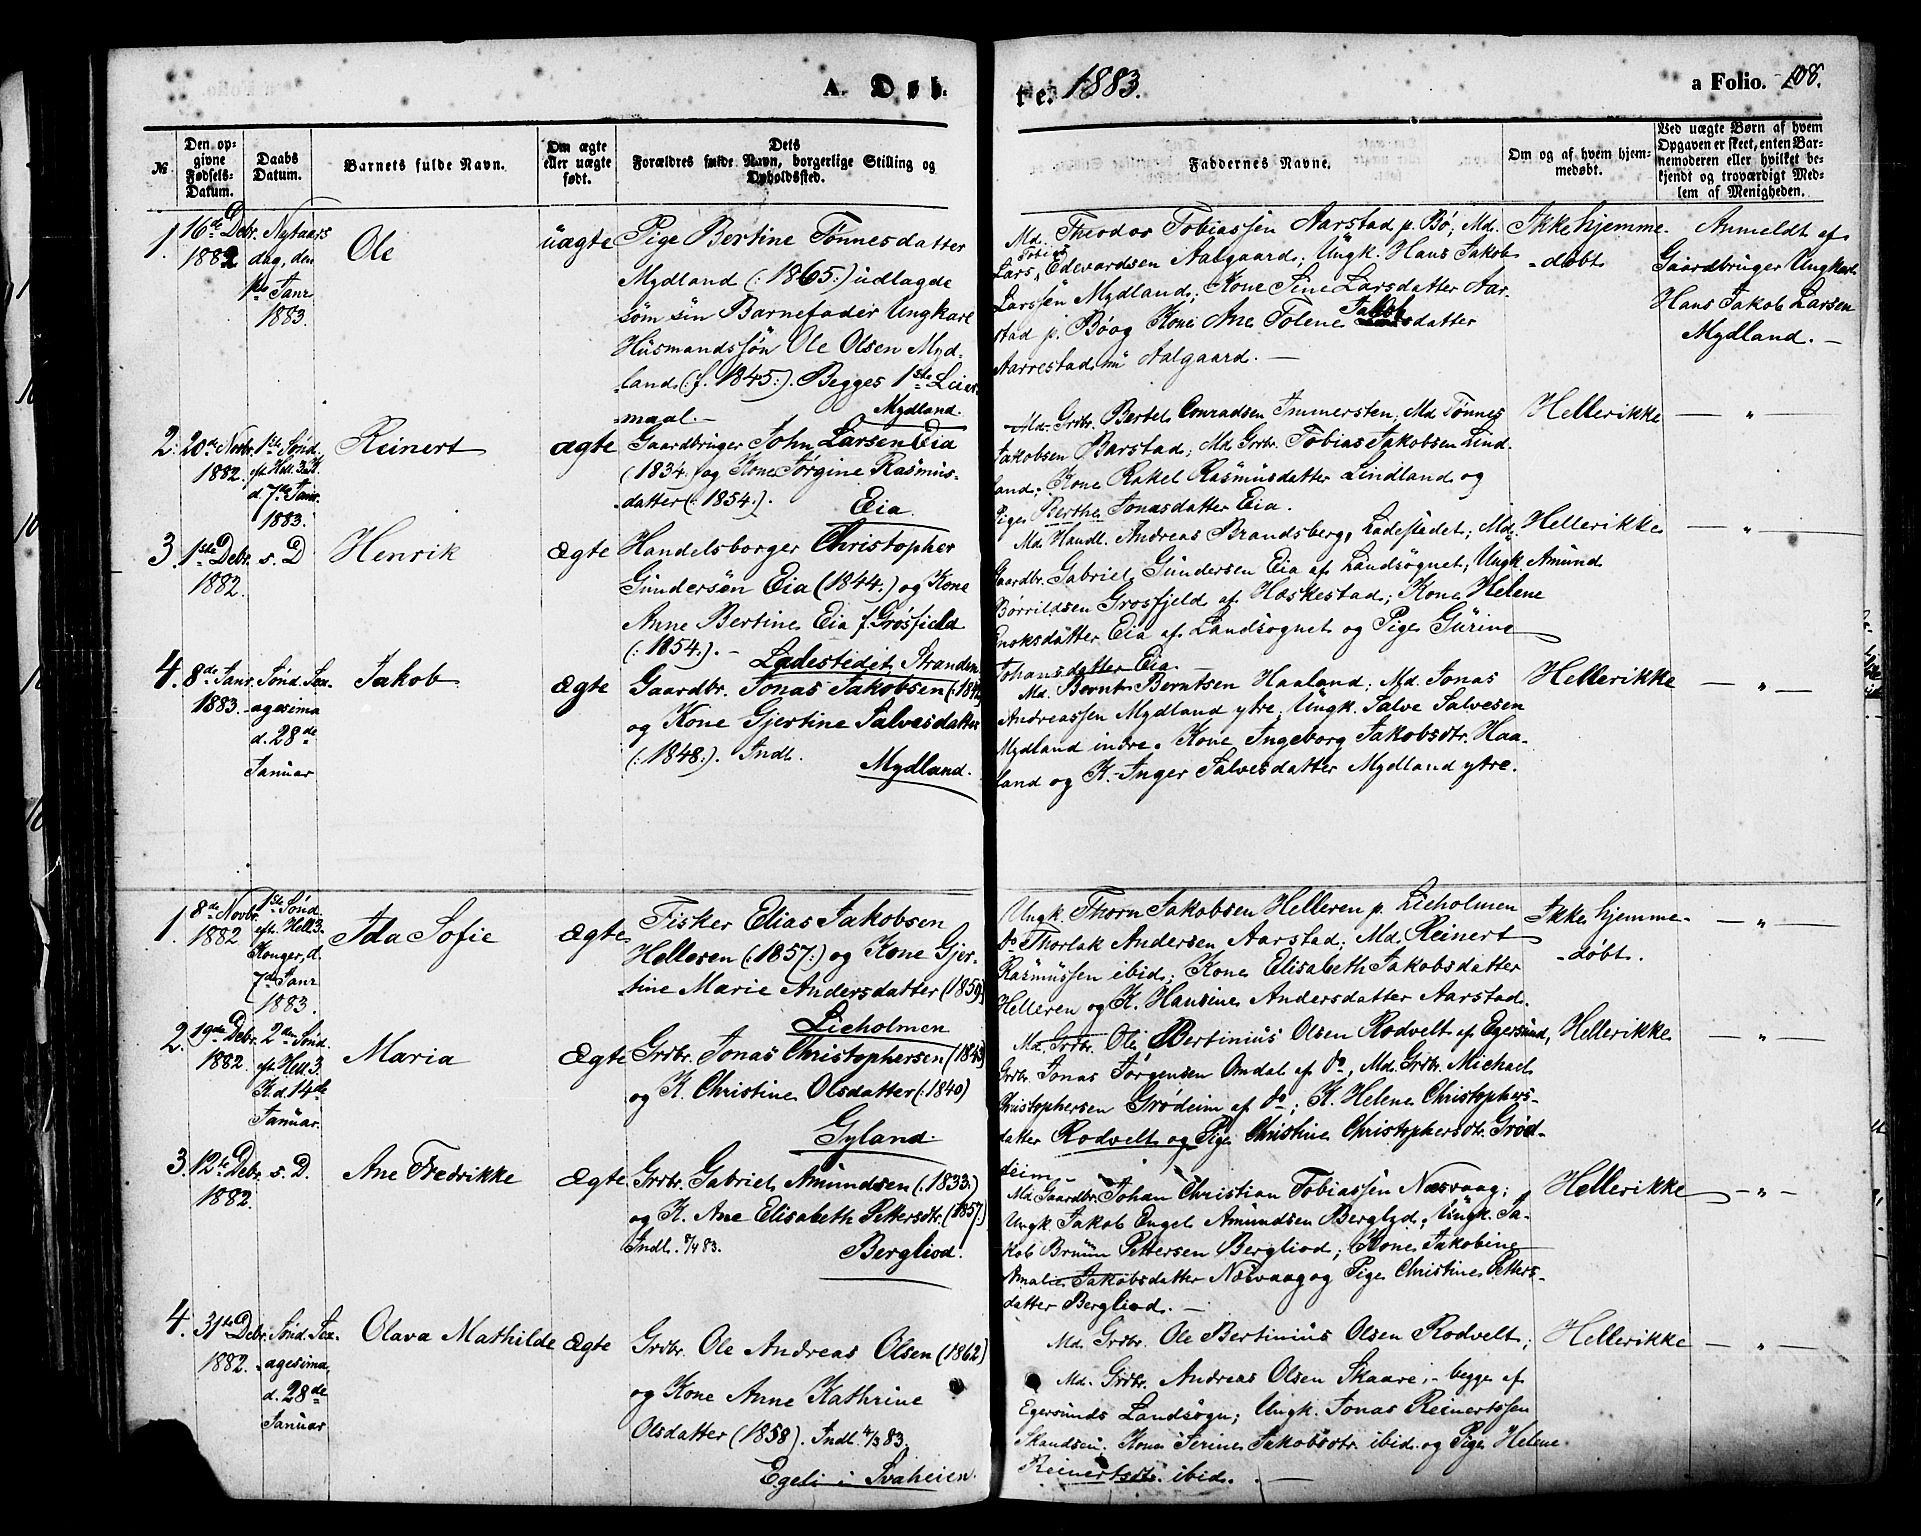 A. Døb-
te. 1883.
a Folio. 108.
№
Den op-
givne
Fødsels-
Datum.
Daabs
Datum.
Barnets fulde Navn.
Om ægte
eller uægte
født.
Dets
Forældres fulde Navn, borgerlige Stilling og
Opholdssted.
Faddernes Navne.
Om og af hvem hjem-
medøbt.
Ved uægte Børn af hvem
Opgaven er skeet, enten Bar-
nemoderen eller hvilket be-
kjendt og troværdigt Med-
lem af Menigheden.
1. 16de Debr.
1882
Nytaars
dag, den
1ste Janr
1883.
Ole
uægte
Pige Bertine Tønnesdatter
Mydland (: 1865:) udlagde
som sin Barnefader Ungkarl
Husmandssøn Ole Olsen Myd-
land (: f. 1845:). Begges 1ste Leier-
maal. – Mydland.
Md. Theodor Tobiassen Aarstad p. Bø; Md.
Lars Tobias Edevardsen Aalgaard; Ungk. Hans Jakob
Larssen Mydland; Kone Sine Larsdatter Aar-
stad p. Bø og Kone Ane Tolene Jakobsdatter
Aarrestad nu Aalgaard. –
Ikke hjemme-
døbt
Anmeldt af
Gaardbruger Ungkarl
Hans Jakob Larsen
Mydland. –
2. 20de Novbr.
1882.
1ste Sønd.
eft. Hell. 3 K.
d. 7de Janr.
1883.
Reinert
ægte
Gaardbruger John Larsen Eia
(1834:) og Kone Jørgine Rasmus-
datter (: 1854:).
Eia.
Md. Grbr. Bertel Conradsen Immersten; Md. Tønnes
Jakobsen Barstad; Md. Grbr. Tobias Jakobsen Lind-
land; Kone Rakel Rasmusdatter Lindland og
Pige Berthe Jonasdatter Eia.
Hellerikke
— " —
3. 1ste Debr.
1882.
s. D
Henrik
Ægte
Handelsborger Christopher
Gundersen Eia (1844:) og Kone
Anne Bertine Eia f. Grøsfield
(: 1854:). – Ladestedet Stranden
Md. Handl. Andreas Brandsberg, Ladestedet; Md.
Gaardbr. Gabriel Gundersen Eia af Landsognet; Ungk. Amund
Børrildsen Grosfjeld af Hæskestad; Kone Helene
Enoksdatter Eia af Landsognet og Pige Gurine
Johansdatter Eia
Hellerikke
— " —
4. 8de Janr.
1883.
Sønd. Sex-
agesima
d. 28de
Januar
Jakob
Ægte
Gaardbr. Jonas Jakobsen
og Kone Gjertine Salvesdatter
(: 1848:). Indl.
Mydland.
Md. Bernt Berntsen Haaland; Md. Jonas
Andreassen Mydland ytre; Ungk. Salve Salvesen
Mydland indre. Kone Ingeborg Jakobsdtr. Haa-
land og K. Inger Salvesdatter Mydland ytre.
Hellerikke
— " —
1. 8de Novbr.
1882
1ste Sønd.
eft. Hell. 3
Konger, d.
7de Janr
1883.
Ida Sofie
Ægte
Fisker Elias Jakobsen
Helleren (: 1857:) og Kone Gjer-
tine Marie Andersdatter (1859)
Licholmen
Ungk. Thorn Jakobsen Helleren p. Licholmen
do Thorlak Andersen Aarstad; Md. Reinert
Rasmussen ibid; Kone Elisabeth Jakobsdatter
Helleren og K. Hansine Andersdatter Aarstad.
Ikke hjemme-
døbt.
— " —
2. 19de Debr.
1882.
2den Sønd.
eft. Hell. 3
K. d. 14de
Januar.
Maria
Ægte
Grbr. Jonas Christophersen (1843)
og K. Christine Olsdatter (: 1840)
Gyland.
Md. Grbr. Ole Bertinius Olsen Rodvelt af Egersund,
Grbr. Jonas Jørgensen Omdal af do, Md. Grbr. Michael
Christophersen Grødeim af do; K. Helene Christophers-
datter Rodvelt og Pige Christine Christophersdtr. Grød-
eim –
Hellerikke
— " —
3. 12te Debr.
1882.
s. D.
Ane Fredrikke
Ægte
Grbr. Gabriel Amundsen (: 1833:)
og K. Ane Elisabeth Pettersdtr. (1857:)
Indl. 8/4 83. Bergliod.
Md. Gaardbr. Johan Christian Tobiassen Næsvaag;
Ungk. Jakob Engel Amundsen Berglyd; Ungk. Ja-
kob Bruun Pettersen Bergliod; Kone Jakobine
Amalie Jakobsdatter Nesvaag og Pige Christine Petters-
datter Bergliod. –
Hellerikke
— " —
4. 31te Debr.
1882.
Sønd. Sex-
agesima,
d. 28de
Januar
Olava Mathilde
Ægte
Grbr. Ole Andreas Olsen (1862)
og Kone Anne Kathrine
Olsdatter (1858). Indl. 4/3 83.
Egeli i Svaheien.
Md. Grbr. Ole Bertinius Olsen Rodvelt;
Md. Grbr. Andreas Olsen Skaare; – begge af
Egersunds Landsogn; Ungk. Jonas Reinertssen
Skandsen. Kone Serine Jakobsdtr. ibid. og Pige Helene
Reinertsdtr. ibid. –
Hellerikke
— " —